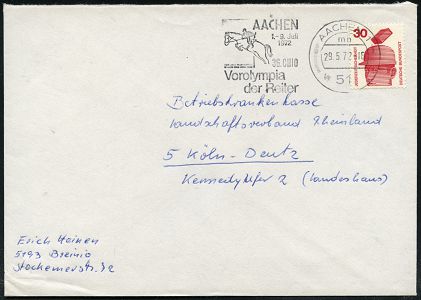 AACHEN
1.-9. Juli
1972
36. CHIO
Vorolympia
der Reiter
AACHEN
mb
29.5.72
51
30
DEUTSCHE BUNDESPOST
Betriebskrankenkasse
Landschaftsverband Rheinland
5 Köln-Deutz
Kennedyufer 2 (Landeshaus)
Erich Heinen
5193 Breinig
Stockemerstr.